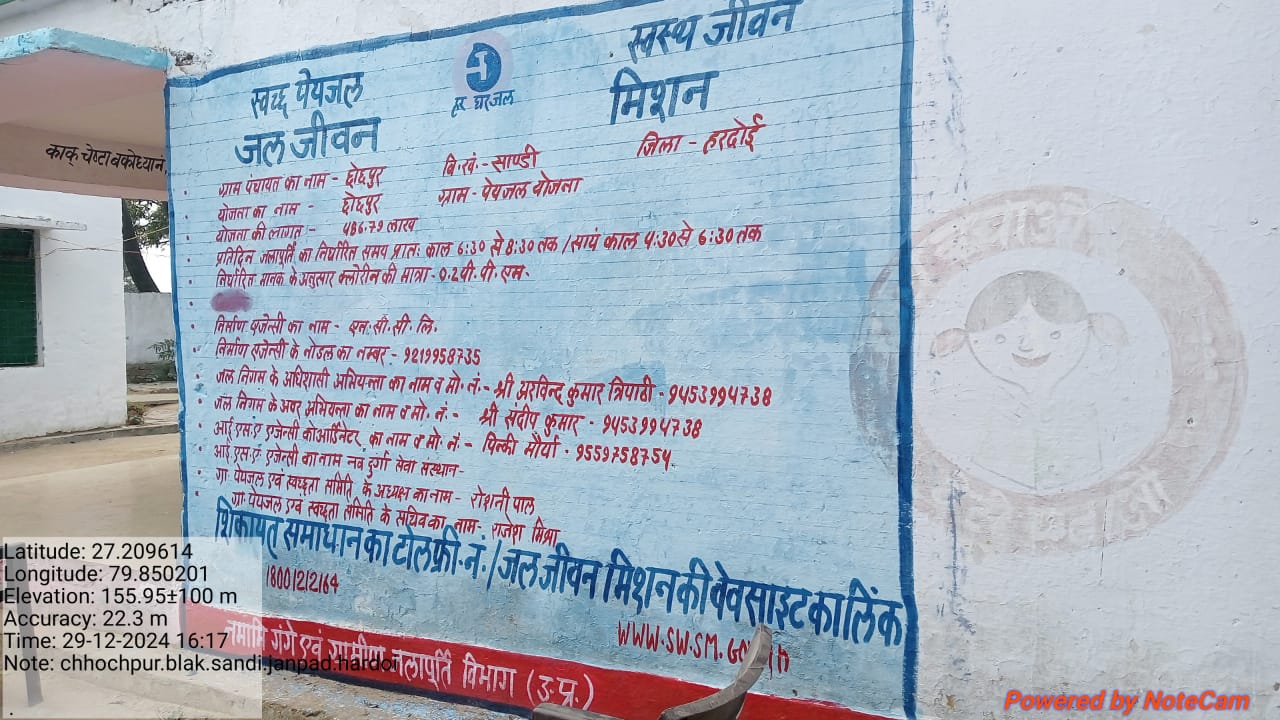 स्वच्छ पेयजल
स्वस्थ जीवन
हर घर जल
जल जीवन
मिशन
काक् चेष्टा बकोध्यानं
ग्राम पंचायत का नाम - छोछपुर वि.खं.- साण्डी जिला - हरदोई
योजना का नाम - छोछपुर ग्राम - पेयजल योजना
योजना की लागत - 486.79 लाख
प्रतिदिन जलापूर्ति का निर्धारित समय प्रातः काल 6:30 से 8:30 तक / सायं काल 4:30 से 6:30 तक
निर्धारित मानक के अनुसार क्लोरीन की मात्रा - 0.2 पी. पी. एम.
निर्माण एजेन्सी का नाम - एन. सी. सी. लि.
निर्माण एजेन्सी के नोडल का नम्बर - 9219958735
जल निगम के अधिशासी अभियन्ता का नाम व मो. नं.- श्री अरविन्द कुमार त्रिपाठी - 9453994738
जल निगम के अवर अभियन्ता का नाम व मो. नं - श्री संदीप कुमार - 9453994738
आई.एस.ए एजेन्सी कोआर्डिनेटर का नाम व मो. नं - पिन्की मौर्या - 9559758754
आई.एस.ए एजेन्सी का नाम नव दुर्गा सेवा संस्थान-
ग्रा. पेयजल एवं स्वच्छता समिति के अध्यक्ष का नाम - रोशनी पाल
ग्रा. पेयजल एवं स्वच्छता समिति के सचिव का नाम- राजेश मिश्रा
शिकायत समाधान का टोल फ्री. नं. / जल जीवन मिशन की वेवसाइट का लिंक
18001212164
WWW.SWSM.GOV.in
नमामि गंगे एवं ग्रामीण जलापूर्ति विभाग (उ.प्र.)
Latitude: 27.209614
Longitude: 79.850201
Elevation: 155.95±100 m
Accuracy: 22.3 m
Time: 29-12-2024 16:17
Note: chhochpur.blak.sandi.janpad.hardoi
.
Powered by NoteCam